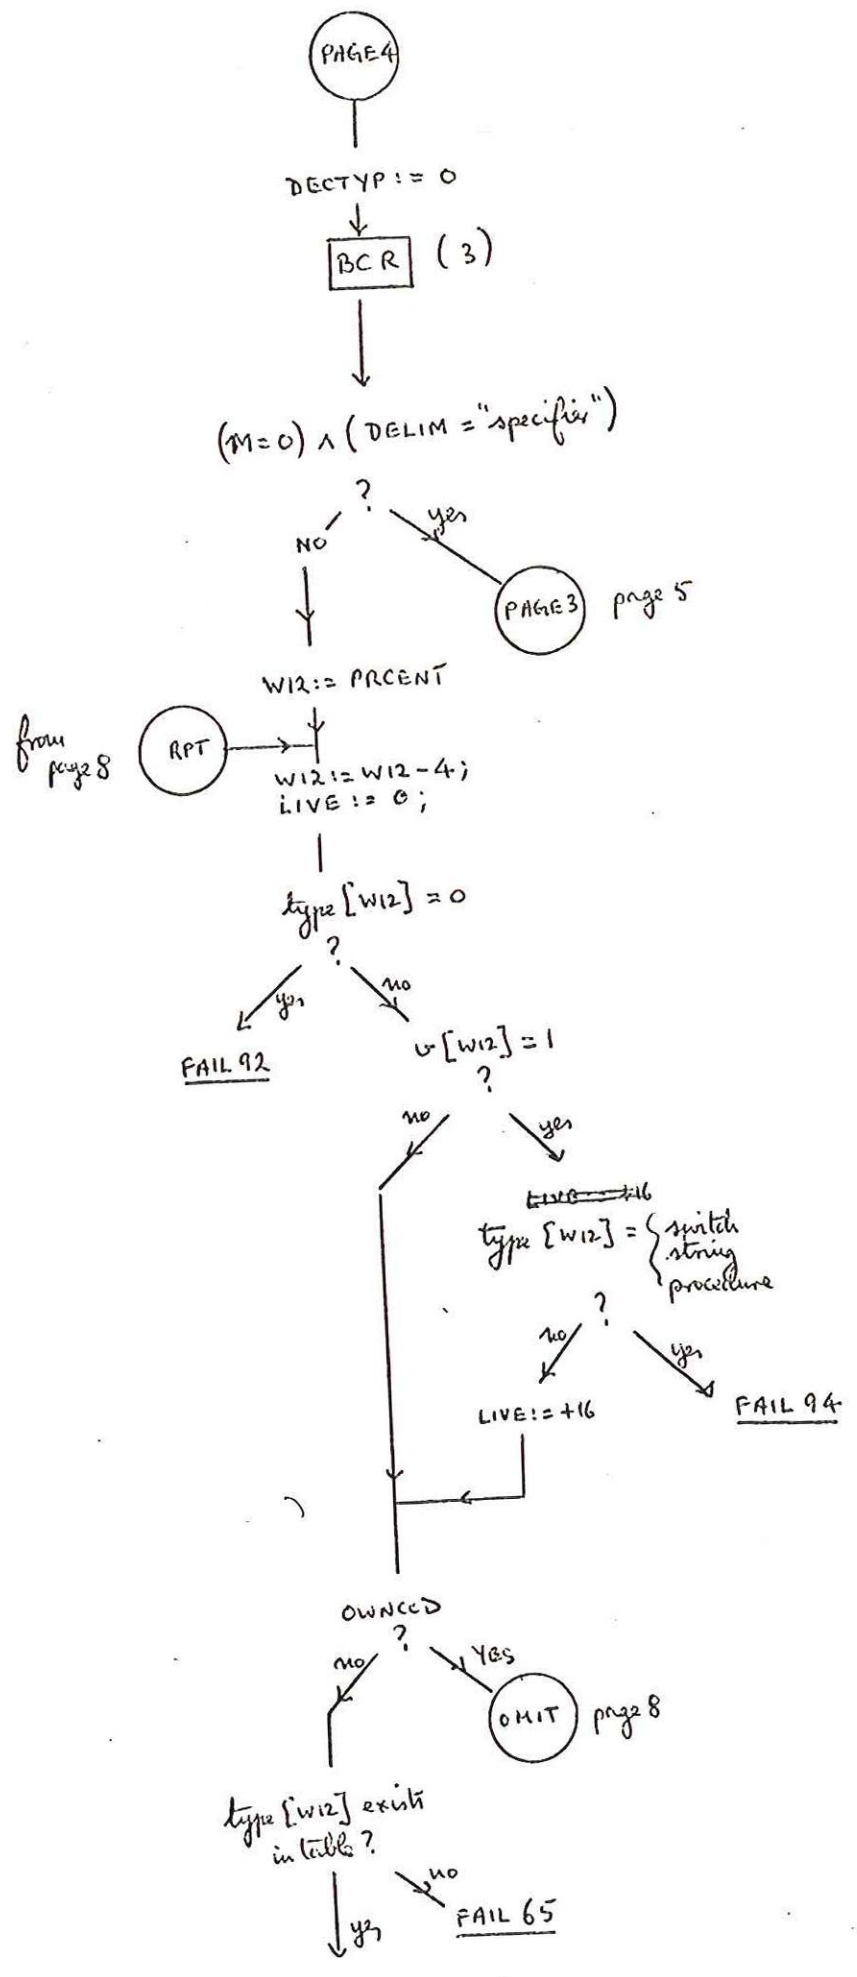 PAGE4
DECTYP := 0
BCR (3)
(M=0) ∧ (DELIM = "specifier")
?
yes
NO
PAGE3 page 5
W12 := PRCENT
from
page 8
RPT
W12 := W12-4;
LIVE := 0;
type [W12] = 0
?
yes no
FAIL 92
v[W12] = 1
?
no yes
type [W12] = { switch
string
procedure
?
no yes
LIVE := +16
FAIL 94
OWNCCD
?
no YES
OMIT page 8
type [W12] exists
in table?
no
FAIL 65
yes